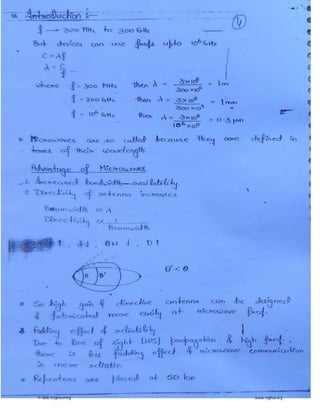 Introduction :-
4
f → 300 MHz to 300 GHz
But devices can use freqs upto 10⁶ GHz
C = λf
λ = C/f
where f = 300 MHz then λ = 3×10⁸ / 300×10⁶ = 1m
f = 300 GHz then λ = 3×10⁸ / 300×10⁹ = 1mm
f = 10⁶ GHz then λ = 3×10⁸ / 10⁶×10⁹ = 0.3μm
* Microwaves are so called because they are defined in
terms of their wavelength.
Advantage of Microwaves
1. Increased bandwidth availability
2. Directivity of antenna increases
Beamwidth ∝ λ
Directivity ∝ 1 / Beamwidth
↑, λ↓, BW ↓, D↑
θ θ' θ' < θ
* So high gain & directive antenna can be designed
& fabricated more easily at microwave freq.
3. Fadding effect & reliability
Due to line of sight [LOS] propagation & high freq.,
there is less fadding effect & microwave communication
is more
* Repeaters are placed at 50 km